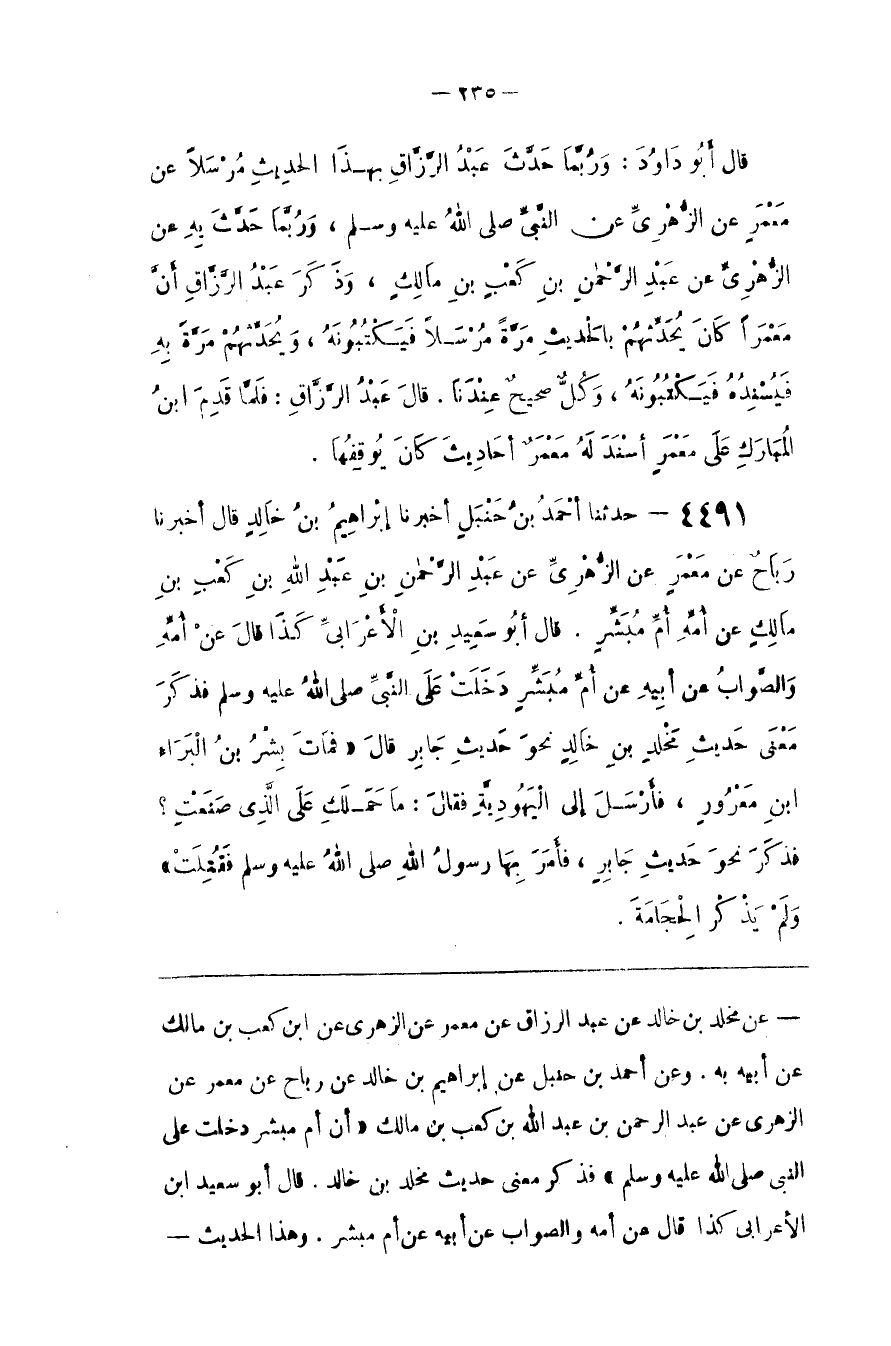 — ٢٣٥ —
قال أَبُو دَاوُدَ : وَرُبَّمَا حَدَّثَ عَبْدُ الرَّزَّاقِ بهـذَا الحديثِ مُرْسَلاً عن
مَعْمَرٍ عن الزُّهْرِىِّ عن النَّبىِّ صلى اللهُ عليه وسـلم ، وَرُبَّمَا حَدَّثَ بِهِ عن
الزُّهْرِىِّ عن عَبْدِ الرَّحْمٰنِ بنِ كَعْبِ بنِ مَالِكٍ ، وَذَكَرَ عَبْدُ الرَّزَّاقِ أَنَّ
مَعْمَراً كَانَ يُحَدِّثُهُمْ بالحديثِ مَرَّةً مُرْسَـلاً فَيَـكْتُبُونَهُ ، وَيُحَدِّثُهُمْ مَرَّةً بِهِ
فَيُسْنِدُهُ فَيَـكْتُبُونَهُ ، وَكُلٌّ صحيحٌ عِنْدَنَا . قالَ عَبْدُ الرَّزَّاقِ : فَلَمَّا قَدِمَ ابنُ
الْمُبَارَكِ عَلَى مَعْمَرٍ أسْنَدَ لَهُ مَعْمَرٌ أحَادِيثَ كَانَ يُوقِفُهَا .
٤٤٩١ — حدثنا أحْمَدُ بنُ حَنْبَلٍ أخبرنا إِبْراهِيمُ بنُ خَالِدٍ قال أخبرنا
رَبَاحٌ عن مَعْمَرٍ عن الزُّهْرِىِّ عن عَبْدِ الرَّحْمٰنِ بنِ عَبْدِ اللهِ بنِ كَعْبِ بنِ
مَالِكٍ عن أُمِّهِ أُمِّ مُبَشِّرٍ . قال أبُو سَعِيدِ بنِ الْأَعْرَابىِّ كَـذَا قالَ عنْ أُمِّهِ
وَالصَّوابُ عن أبِيهِ عن أُمِّ مُبَشِّرٍ دَخَلَتْ عَلَى النَّبىِّ صلى اللهُ عليه وسلم فذكَرَ
مَعْنَى حَدِيثِ مَخْلَدِ بنِ خَالِدٍ نحوَ حَديثِ جَابِرٍ قالَ « فَمَاتَ بِشْرُ بنُ الْبَرَاء
ابنِ مَعْرُورٍ ، فأَرْسَـلَ إلى الْيَهُودِيَّةِ فقالَ : مَا حَمَـلَكِ عَلَى الَّذِى صَنَعْتِ ؟
فذكَرَ نحوَ حَديثِ جَابِرٍ ، فأَمَرَ بِهَا رسولُ اللهِ صلى اللهُ عليه وسلم فَقُتِلَتْ »
وَلَمْ يَذْكُرِ الْحِجَامَةَ .
— عن مخلد بن خالد عن عبد الرزاق عن معمر عن الزهرى عن ابن كعب بن مالك
عن أبيه به . وعن أحمد بن حنبل عن إبراهيم بن خالد عن رباح عن معمر عن
الزهرى عن عبد الرحمن بن عبد الله بن كعب بن مالك « أن أم مبشر دخلت على
النبى صلى الله عليه وسلم » فذكر معنى حديث مخلد بن خالد . قال أبو سعيد ابن
الأعرابى كذا قال عن أمه والصواب عن أبيه عن أم مبشر . وهذا الحديث —